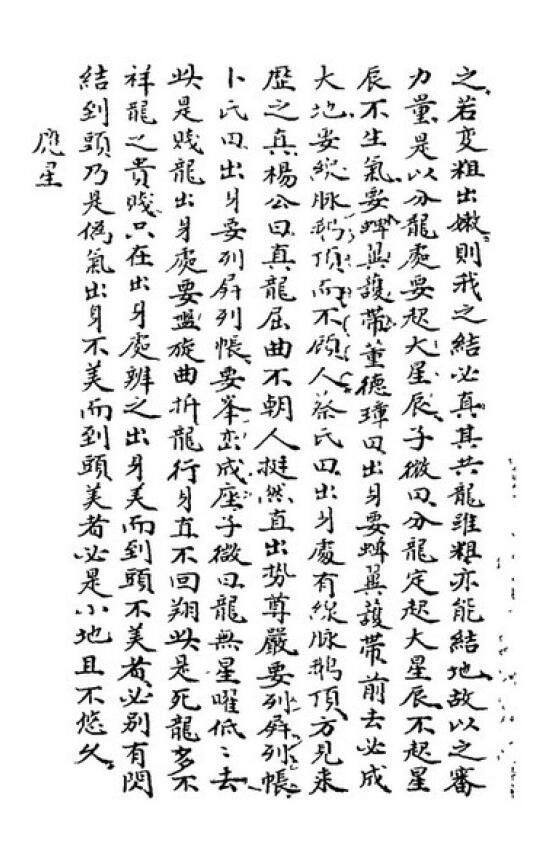 之若变粗出嫩則我之結必真其共龍雖粗亦能結地故以之審
力量是以分龍處要起大星辰子微曰分龍定起大星辰不起星
辰不生氣要蟬翼護帶董德璋曰出身要蟬翼護帶前去必成
大地要線脉鵝頂而不顧人蔡氏曰出身處有線脉鵝頂方見来
歴之真楊公曰真龍屈曲不朝人挺然直出勢尊嚴要列屏列帳
卜氏曰出身要列屏列帳要峯巒成座子微曰龍無星曜低〻去
此是賤龍出身處要盤旋曲折龍行身直不回翔此是死龍多不
祥龍之貴賤只在出身處辨之出身美而到頭不美者必别有閃
結到頭乃是偽氣出身不美而到頭美者必是小地且不悠久
應星